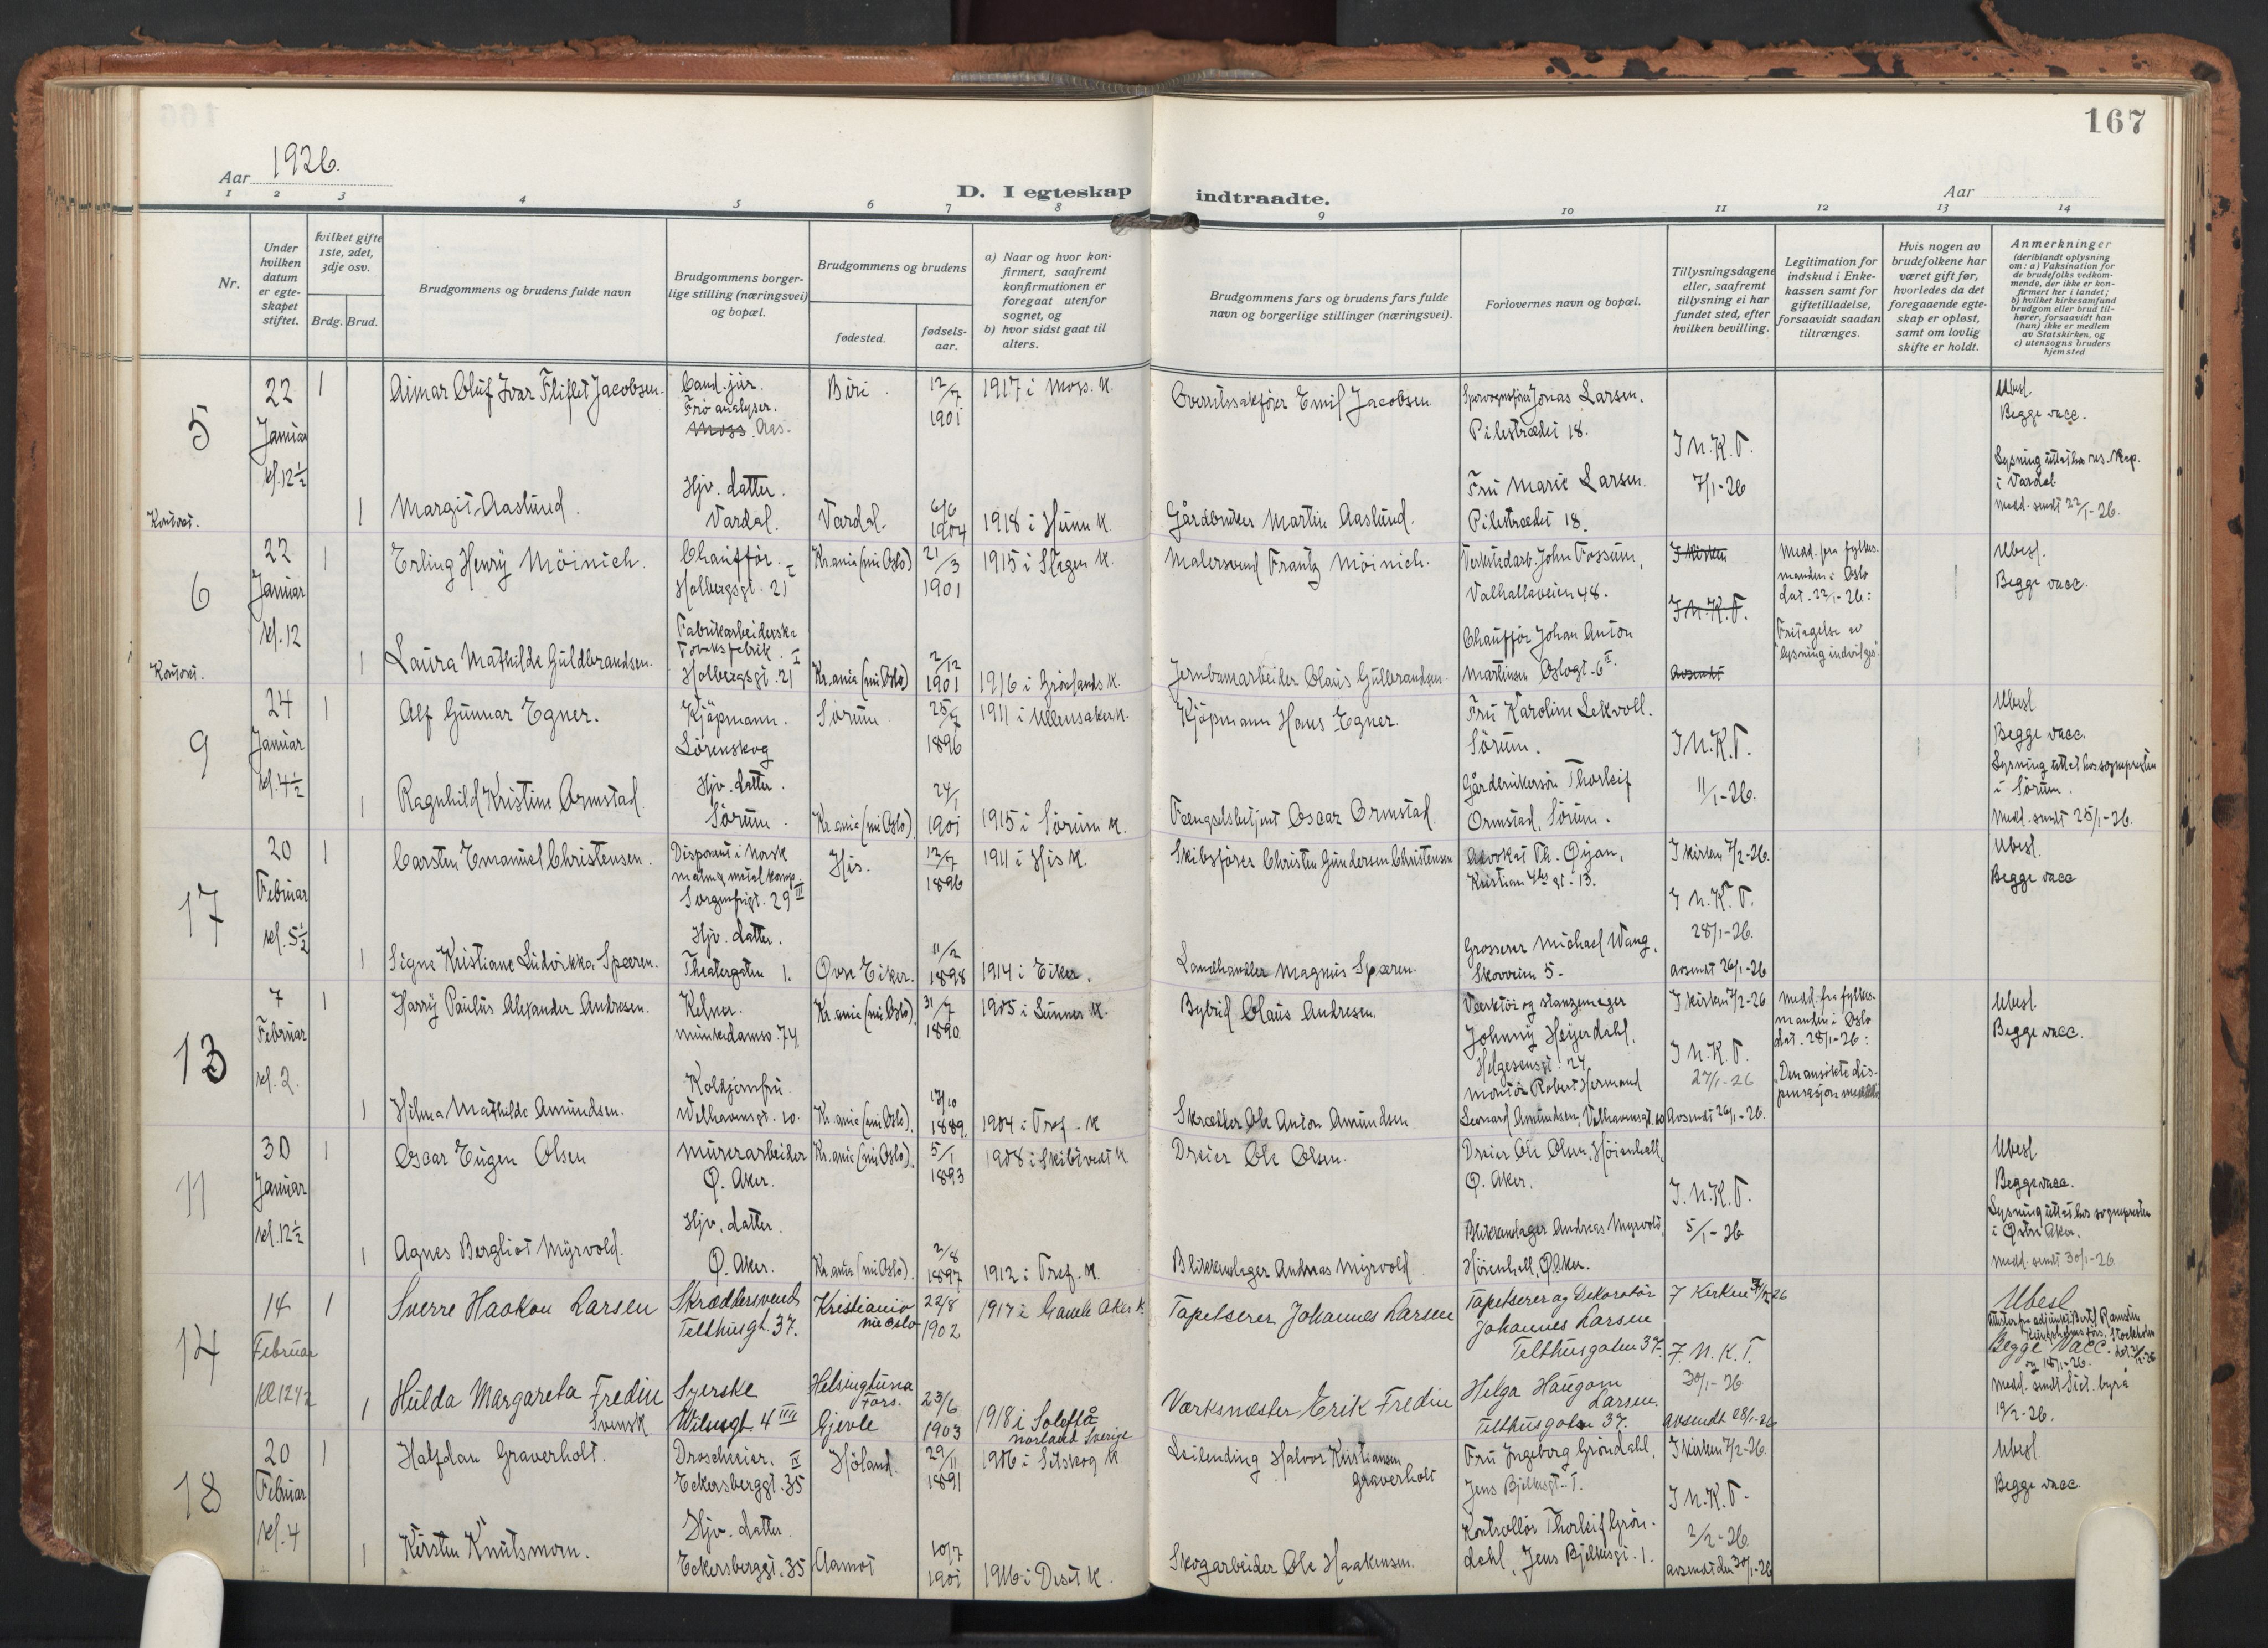 167
Aar 1926.
D. I egteskap indtraadte.
Aar
1 2 3 4 5 6 7 8 9 10 11 12 13 14
Nr.
Under hvilken datum er egte-skapet stiftet.
Hvilket gifte 1ste, 2det, 3dje osv.
Brdg. Brud.
Brudgommens og brudens fulde navn
Brudgommens borger-lige stilling (næringsvei) og bopæl.
Brudgommens og brudens
fødested.
fødsels-aar.
a) Naar og hvor kon-firmert, saafremt konfirmationen er foregaat utenfor sognet, og
b) hvor sidst gaat til alters.
Brudgommens fars og brudens fars fulde navn og borgerlige stillinger (næringsvei).
Forlovernes navn og bopæl.
Tillysningsdagene eller, saafremt tillysning ei har fundet sted, efter hvilken bevilling.
Legitimation for indskud i Enke-kassen samt for giftetilladelse, forsaavidt saadan tiltrænges.
Hvis nogen av brudefolkene har været gift før, hvorledes da det foregaaende egte-skap er opløst, samt om lovlig skifte er holdt.
Anmerkninger
(deriblandt oplysning om: a) Vaksination for de brudefolks vedkom-mende, der ikke er kon-firmert her i landet; b) hvilket kirkesamfund brudgom eller brud til-hører, forsaavidt han (hun) ikke er medlem av Statskirken, og c) utensogns bruders hjemsted
5
22 Januar kl. 12½
1
Aimar Oluf Ivar Fliflet Jacobsen.
Cand. jur.
Frø analyser.
Moss. Aas.
Biri.
12/7 1901
1917 i Moss. K.
Overretssakfører Emil Jacobsen
Jonas Larsen.
Pilestrædet 18.
I N.K.T.
7/1-26
Ubesl.
Begge vacc.
Lysning uttat hos res. Kap.
i Vardal
Medd. sendt 22/1-26.
Kontoret.
1
Margit Aaslund.
Hjv. datter.
Vardal.
Vardal.
6/6 1904
1918 i Hunn K.
Gårdbruker Martin Aaslund.
Fru Marie Larsen.
Pilestrædet 18.
6
22 Januar kl. 12
1
Erling Henry Möinich.
Chauffør.
Holbergsgt. 21 I
Kr.ania (nu Oslo)
21/3 1901
1915 i Slagen K.
Malersvend Frantz Möinich.
Verkstedarb. John Fossum,
Valhallaveien 48.
I kirken
I N.K.T.
Avsendt
Medd. fra fylkes-
manden i Oslo
dat. 22/1-26:
Fritagelse av
lysning indvilges.
Ubesl.
Begge vacc.
Kontoret.
1
Laura Mathilde Guldbrandsen.
Fabrikarbeiderske
Tobaksfabrik.
Holbergsgt. 21 I
Kr.ania (nu Oslo)
2/12 1901
1916 i Grønlands K.
Jernbanearbeider Olaus Gulbrandsen.
Chauffør Johan Anton
Martinsen Oslogt. 6 II.
9
24 Januar kl. 4½
1
Alf Gunnar Egner.
Kjøpmann.
Lörenskog
Sørum
25/7 1896
1911 i Ullensaker K.
Kjøpmann Hans Egner.
Fru Karoline Lekvoll.
Sørum.
I N.K.T.
11/1-26.
Ubesl
Begge vacc.
Lysning uttat hos sognepresten
i Sørum.
Medd. sendt 25/1-26.
1
Ragnhild Kristine Ormstad.
Hjv. datter.
Sørum.
Kr.ania (nu Oslo).
24/1 1901
1915 i Sørum K.
Fængselsbetjent Oscar Ormstad.
Gårdbrukersøn Thorleif
Ormstad, Sørum.
17
20 Februar kl. 5½
1
Carsten Emanuel Christensen.
Disponent i Norsk
malm & metal komp.
Sorgenfrigt. 29 III
His.
12/7 1896
1911 i His K.
Skibsfører Christen Gundersen Christensen
Advokat Th. Øyan,
Kristian 4des gt. 13.
I kirken 7/2-26.
I N.K.T.
28/1-26.
avsendt 26/1-26
Ubesl.
Begge vacc
1
Signe Kristiane Ludvikka Spæren.
Hjv. datter.
Theatergaten 1.
Øvre Eiker.
11/2 1898
1914 i Eiker.
Landhandler Magnus Spæren.
Grosserer Michael Wang,
Skovveien 5.
13
7 Februar kl. 2.
1
Harry Paulus Alexander Andresen.
Kelner.
Munkedamsv. 74.
Kr.ania (nu Oslo).
31/7 1890.
1905 i Sunnes K.
Bybud Olaus Andresen.
Værktøi og stanzemager
Johnny Heyerdahl,
Helgesensgt. 27
I kirken 7/2-26
I N.K.T.
27/1-26
Avsendt 26/1-26.
Medd. fra fylkes-
manden i Oslo
dat. 28/1-26:
"Den ansøkte dis-
pensasjon meddeles
Ubesl.
Begge vacc.
1
Hilma Mathilde Amundsen.
Koldjomfru.
Welhavensgt. 10.
Kr.ania (nu Oslo).
17/10 1889.
1904 i Tref. K
Skrædder Ole Anton Amundsen
Montør Robert Hermand
Leonard Amundsen, Velhavensgt. 10
11
30 Januar kl. 12½
1
Oscar Eugen Olsen
Murerarbeider
Ø. Aker.
Kr.ania (nu Oslo).
5/1 1893
1908 i Skibtvedt K
Dreier Ole Olsen.
Dreier Ole Olsen, Höienhall,
Ø. Aker.
I. N.K.T.
5/1-26
Ubesl
Begge vacc.
Lysning uttat hos sognepresten
i Østre Aker.
Medd. sendt 30/1-26.
1
Agnes Bergliot Myrvold.
Hjv. datter.
Ø. Aker.
Kr.ania (nu Oslo).
2/8 1897
1912 i Tref. K.
Blikkenslager Andreas Myrvold
Blikkenslager Andreas Myrvold,
Höienhall, Ø. Aker.
14
14 Februar Kl 12½
1
Sverre Haakon Larsen
Skrædersvend
Telthusgt. 37.
Kristiania
nu Oslo
22/8 1902
1917 i Gamle Aker K.
Tapetserer Johannes Larsen
Tapetserer og Dekoratør
Johannes Larsen
Telthusgaten 37.
I Kirken
I N.K.T.
30/1-26
avsendt 28/1-26
Ubesl
Begge Vacc.
og 18/1-26.
Medd. sendt Sict. byrå
19/2-26.
1
Hulda Margareta Fredin
Svensk
Syerske
Wilsesgt. 4 III
Helsingtuna
Fors.
Gjevle
23/6 1903
1918 i Soleftå
Norland Sverige
Værksmester Erik Fredin
Helga Haugom
Larsen.
Telthusgaten 37.
18
20 Februar kl. 4
1
Halfdan Graverholt.
Droscheeier.
Eckersberggt. 35 IV
Höland.
29/11 1891
1906 i Setskog K.
Leilending Halvor Kristiansen
Graverholt
Fru Ingeborg Gröndahl,
Jens Bjelkesgt. 1.
I kirken 7/2-26.
I N.K.T.
2/2-26
avsendt den 30/1-26
Ubesl
Begge vacc.
1
Kirsten Knutsmoen.
Hjv. datter.
Eckersberggt. 35
Aamot
10/7 1901
1916 i Deset K.
Skogarbeider Ole Haakensen.
Kontrollør Thorleif Grön-
dahl, Jens Bjelkesgt. 1.